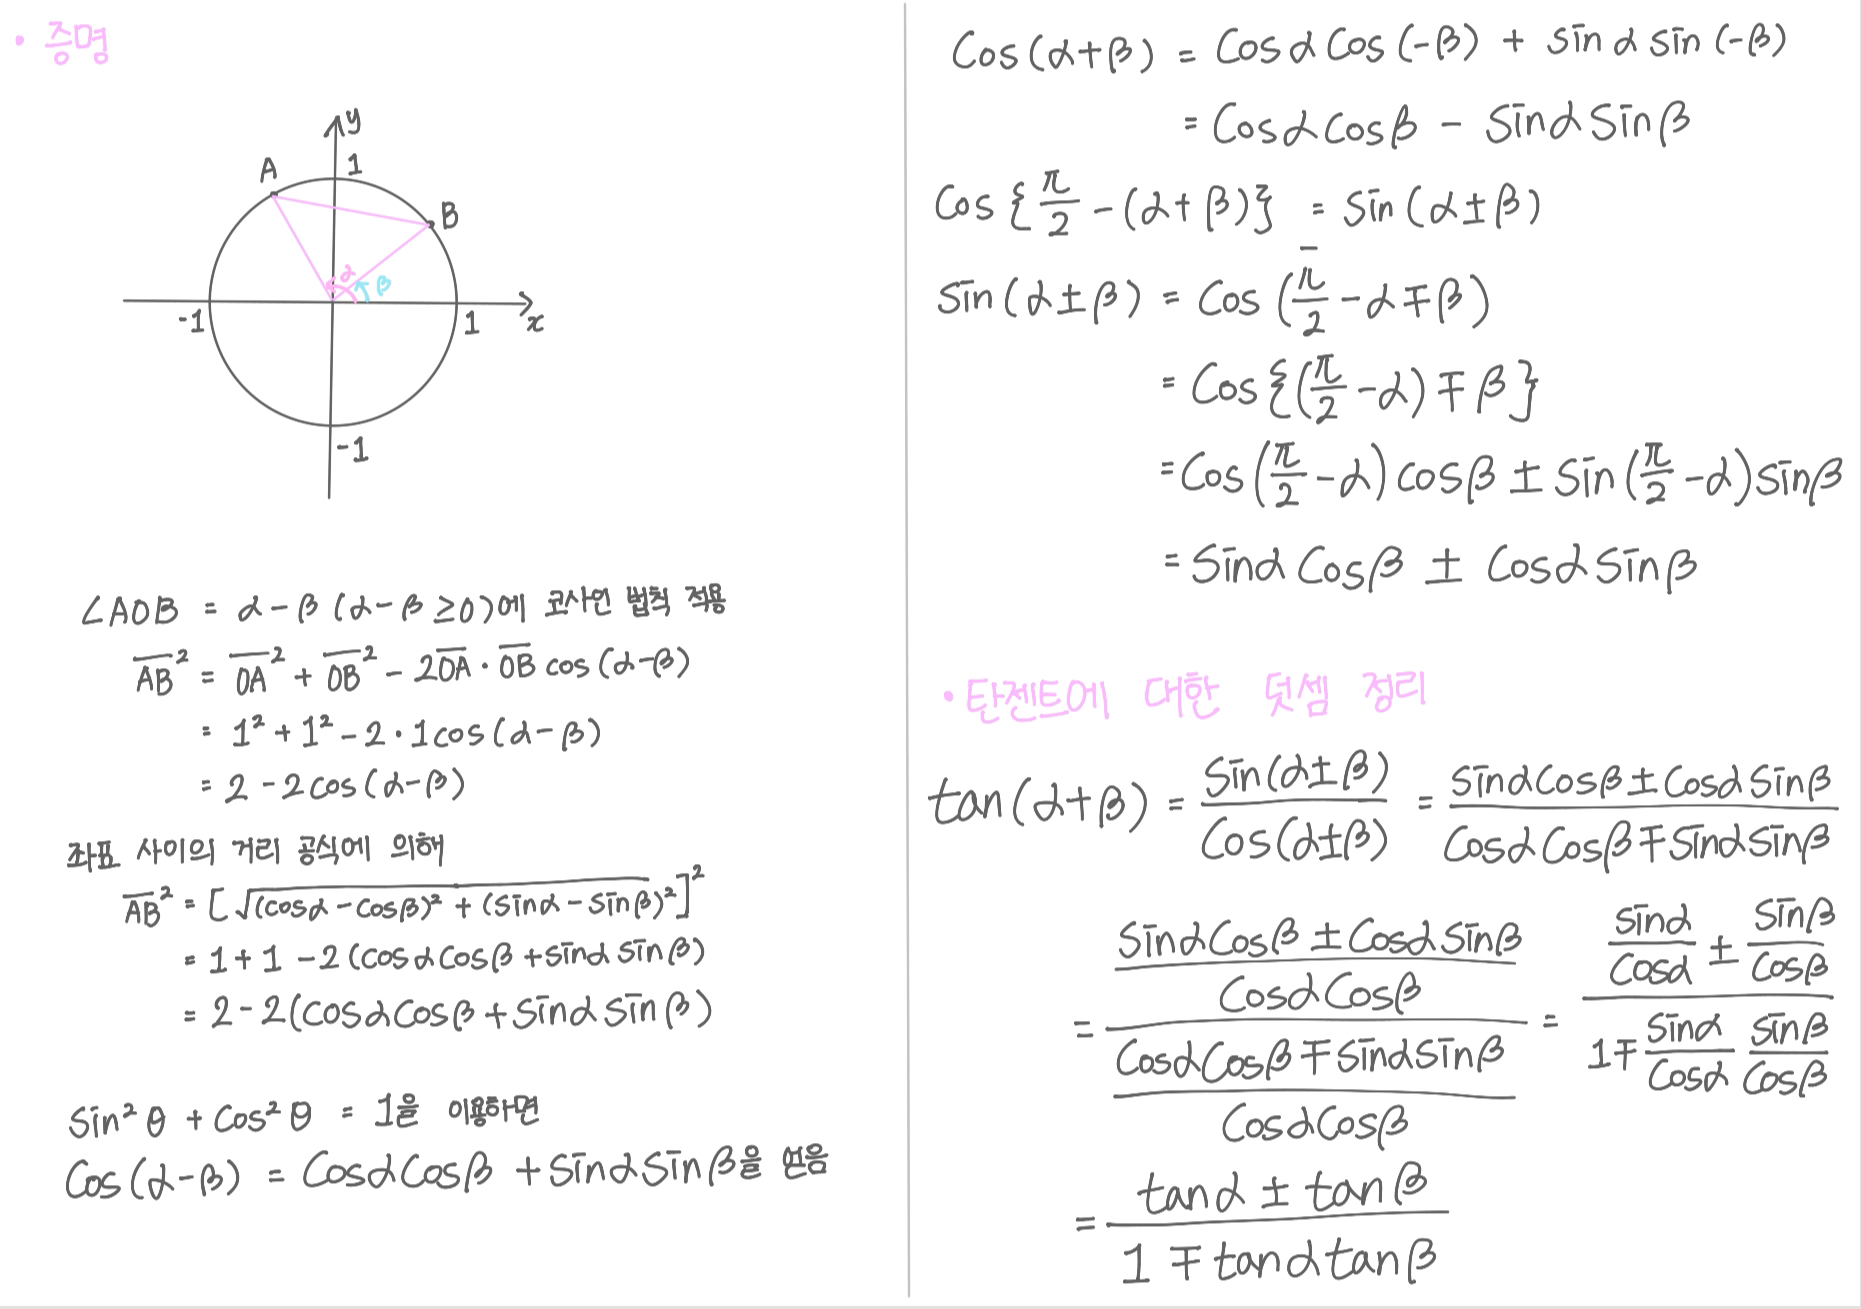 • 증명
y
A
1
B
α
β
-1
1
x
-1
∠AOB = α-β (α-β ≥0)에 코사인 법칙 적용
A̅B̅² = O̅A̅² + O̅B̅² - 2O̅A̅ · O̅B̅ cos (α-β)
= 1² + 1² - 2 · 1cos (α-β)
= 2 - 2cos (α-β)
좌표 사이의 거리 공식에 의해
A̅B̅² = [√(cosα - cosβ)² + (sinα - sinβ)²]²
= 1+1 -2 (cosαcosβ + sinα sinβ)
= 2-2(cosαcosβ + sinα sinβ)
sin²θ + cos²θ = 1을 이용하면
cos (α-β) = cosαcosβ + sinαsinβ을 얻음
cos (α+β) = cosαcos (-β) + sinαsin (-β)
= cosαcosβ - sinαsinβ
cos {π/2 - (α+β)} = sin (α±β)
-
sin (α±β) = cos (π/2 - α∓β)
= cos{(π/2 - α) ∓ β}
= cos (π/2 - α) cosβ ± sin (π/2 - α) sinβ
= sinαcosβ ± cosαsinβ
• 탄젠트에 대한 덧셈 정리
tan(α+β) = sin(α±β)/cos(α±β) = (sinαcosβ ± cosαsinβ)/(cosαcosβ ∓ sinαsinβ)
= ((sinαcosβ ± cosαsinβ)/(cosαcosβ))/((cosαcosβ ∓ sinαsinβ)/(cosαcosβ)) = (sinα/cosα ± sinβ/cosβ)/(1∓ sinα/cosα sinβ/cosβ)
= (tanα ± tanβ)/(1 ∓ tanαtanβ)